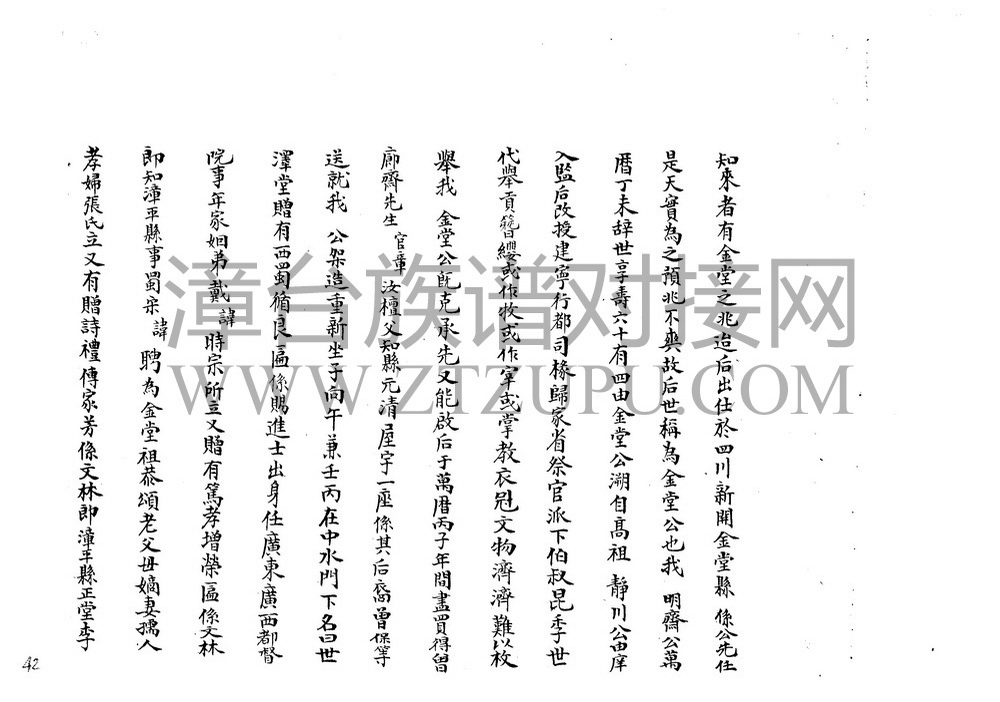 知來者有金堂之兆迨后出仕於四川新開金堂縣 係公先任
是天實為之預兆不爽故后世稱為金堂公也我 明齋公萬
曆丁未辞世享壽六十有四由金堂公溯自高祖 靜川公由庠
入監后改授建寧行都司椽歸家省祭官派下伯叔昆季世
代舉貢簪纓或作牧或作宰或掌教衣冠文物濟濟難以枚
舉我 金堂公既克承先又能啟后于萬曆丙子年間盡買得曾
廊齋先生 官章 汝檀父知縣元清屋宇一座係其后裔曾保等
送就我 公架造重新坐子向午兼壬丙在中水門下名曰世
澤堂贈有西蜀循良匾係賜進士出身任廣東廣西都督
院事年家姻弟戴 諱 時宗所立又贈有篤孝增榮匾係文林
郎知漳平縣事蜀宋 諱 聘為金堂祖恭頌老父母嫡妻孺人
孝婦張氏立又有贈詩禮傳家芳係文林郎漳平縣正堂李
42
漳台族谱对接网
WWW.ZTZUPU.COM